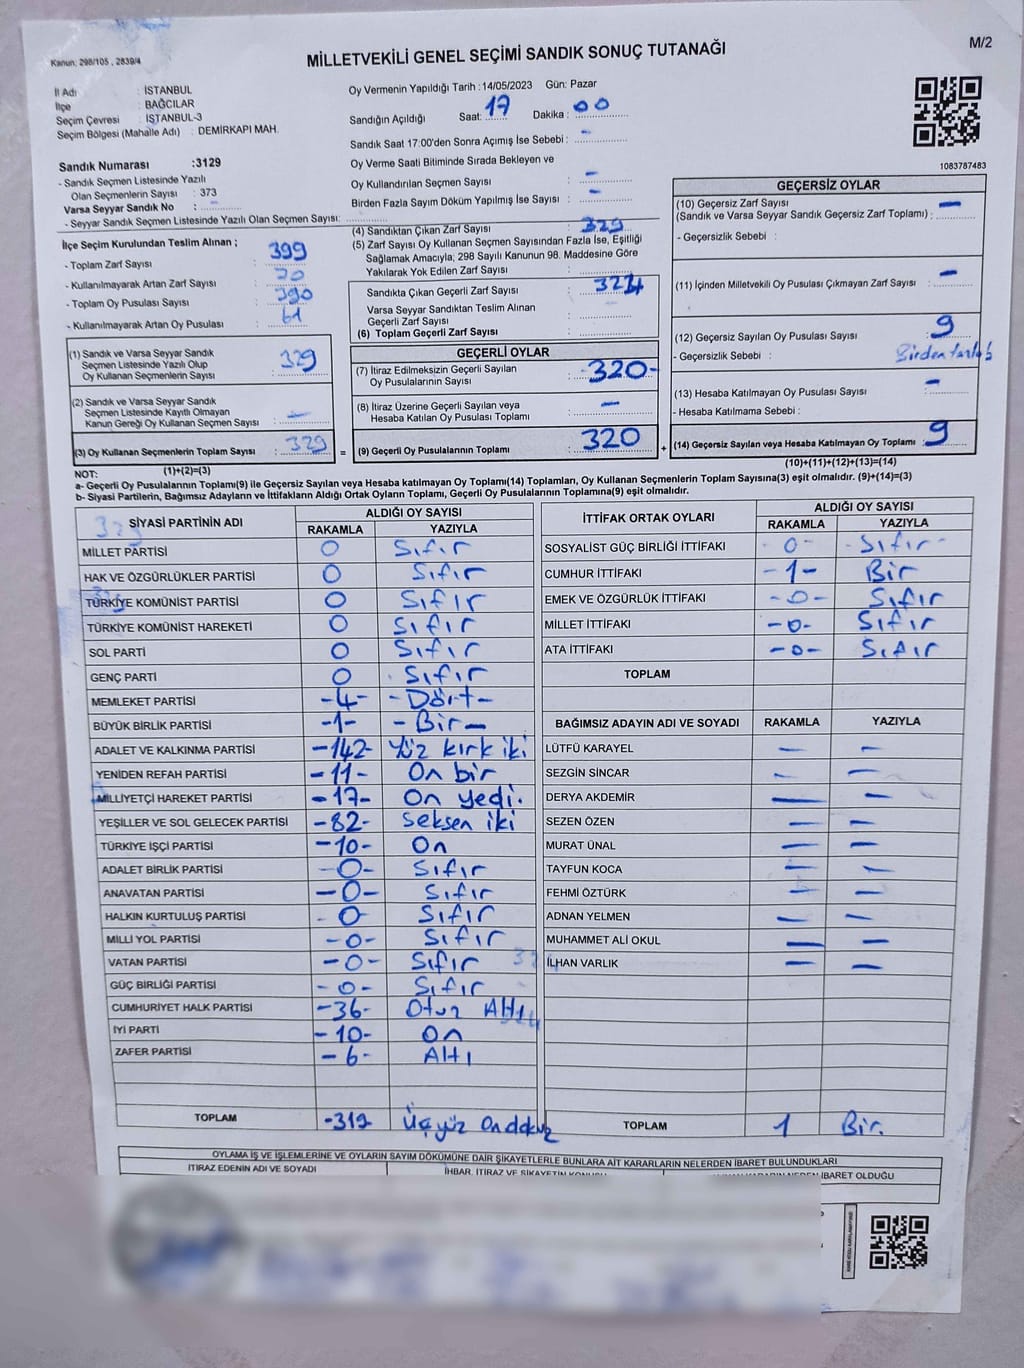 Kanun: 298/105 , 2839/4
MİLLETVEKİLİ GENEL SEÇİMİ SANDIK SONUÇ TUTANAĞI
M/2
İl Adı : İSTANBUL
İlçe : BAĞCILAR
Seçim Çevresi : İSTANBUL-3
Seçim Bölgesi (Mahalle Adı) : DEMİRKAPI MAH.
Sandık Numarası :3129
- Sandık Seçmen Listesinde Yazılı
Olan Seçmenlerin Sayısı : 373
Varsa Seyyar Sandık No : -
- Seyyar Sandık Seçmen Listesinde Yazılı Olan Seçmen Sayısı:
Oy Vermenin Yapıldığı Tarih :14/05/2023 Gün: Pazar
Sandığın Açıldığı Saat: 17 Dakika : 00
Sandık Saat 17:00'den Sonra Açımış İse Sebebi : -
Oy Verme Saati Bitiminde Sırada Bekleyen ve
Oy Kullandırılan Seçmen Sayısı : -
Birden Fazla Sayım Döküm Yapılmış İse Sayısı : -
1083787483
İlçe Seçim Kurulundan Teslim Alınan ;
- Toplam Zarf Sayısı : 399
- Kullanılmayarak Artan Zarf Sayısı : 70
- Toplam Oy Pusulası Sayısı : 390
- Kullanılmayarak Artan Oy Pusulası : 61
(1) Sandık ve Varsa Seyyar Sandık
Seçmen Listesinde Yazılı Olup
Oy Kullanan Seçmenlerin Sayısı : 329
(2) Sandık ve Varsa Seyyar Sandık
Seçmen Listesinde Kayıtlı Olmayan
Kanun Gereği Oy Kullanan Seçmen Sayısı : -
(3) Oy Kullanan Seçmenlerin Toplam Sayısı : 329
(1)+(2)=(3)
(4) Sandıktan Çıkan Zarf Sayısı : 329
(5) Zarf Sayısı Oy Kullanan Seçmen Sayısından Fazla İse, Eşitliği
Sağlamak Amacıyla; 298 Sayılı Kanunun 98. Maddesine Göre
Yakılarak Yok Edilen Zarf Sayısı :
Sandıkta Çıkan Geçerli Zarf Sayısı :
Varsa Seyyar Sandıktan Teslim Alınan
Geçerli Zarf Sayısı :
(6) Toplam Geçerli Zarf Sayısı :
GEÇERLİ OYLAR
(7) İtiraz Edilmeksizin Geçerli Sayılan
Oy Pusulalarının Sayısı : -320-
(8) İtiraz Üzerine Geçerli Sayılan veya
Hesaba Katılan Oy Pusulası Toplamı : -
= (9) Geçerli Oy Pusulalarının Toplamı : 320 +
GEÇERSİZ OYLAR
(10) Geçersiz Zarf Sayısı
(Sandık ve Varsa Seyyar Sandık Geçersiz Zarf Toplamı) : -
- Geçersizlik Sebebi :
(11) İçinden Milletvekili Oy Pusulası Çıkmayan Zarf Sayısı : -
(12) Geçersiz Sayılan Oy Pusulası Sayısı : 9
- Geçersizlik Sebebi : Birden fazla
(13) Hesaba Katılmayan Oy Pusulası Sayısı : -
- Hesaba Katılmama Sebebi :
(14) Geçersiz Sayılan veya Hesaba Katılmayan Oy Toplamı : 9
(10)+(11)+(12)+(13)=(14)
NOT:
a- Geçerli Oy Pusulalarının Toplamı(9) ile Geçersiz Sayılan veya Hesaba katılmayan Oy Toplamı(14) Toplamları, Oy Kullanan Seçmenlerin Toplam Sayısına(3) eşit olmalıdır. (9)+(14)=(3)
b- Siyasi Partilerin, Bağımsız Adayların ve İttifakların Aldığı Ortak Oyların Toplamı, Geçerli Oy Pusulalarının Toplamına(9) eşit olmalıdır.
SİYASİ PARTİNİN ADI
ALDIĞI OY SAYISI
RAKAMLA YAZIYLA
MİLLET PARTİSİ 0 Sıfır
HAK VE ÖZGÜRLÜKLER PARTİSİ 0 Sıfır
TÜRKİYE KOMÜNİST PARTİSİ 0 Sıfır
TÜRKİYE KOMÜNİST HAREKETİ 0 Sıfır
SOL PARTİ 0 Sıfır
GENÇ PARTİ 0 Sıfır
MEMLEKET PARTİSİ -4- -Dört-
BÜYÜK BİRLİK PARTİSİ -1- -Bir-
ADALET VE KALKINMA PARTİSİ -142- Yüz kırk iki
YENİDEN REFAH PARTİSİ -11- On bir
MİLLİYETÇİ HAREKET PARTİSİ -17- On yedi.
YEŞİLLER VE SOL GELECEK PARTİSİ -82- Seksen iki
TÜRKİYE İŞÇİ PARTİSİ -10- On
ADALET BİRLİK PARTİSİ -0- Sıfır
ANAVATAN PARTİSİ -0- Sıfır
HALKIN KURTULUŞ PARTİSİ -0 Sıfır
MİLLİ YOL PARTİSİ -0- Sıfır
VATAN PARTİSİ -0- Sıfır
GÜÇ BİRLİĞİ PARTİSİ -0- Sıfır
CUMHURİYET HALK PARTİSİ -36- Otuz Altı
İYİ PARTİ -10- On
ZAFER PARTİSİ -6- Altı
TOPLAM -319 Üçyüz Ondokuz
İTTİFAK ORTAK OYLARI
ALDIĞI OY SAYISI
RAKAMLA YAZIYLA
SOSYALİST GÜÇ BİRLİĞİ İTTİFAKI -0- -Sıfır-
CUMHUR İTTİFAKI -1- Bir
EMEK VE ÖZGÜRLÜK İTTİFAKI -0- Sıfır
MİLLET İTTİFAKI -0- Sıfır
ATA İTTİFAKI -0- Sıfır
TOPLAM
BAĞIMSIZ ADAYIN ADI VE SOYADI RAKAMLA YAZIYLA
LÜTFÜ KARAYEL - -
SEZGİN SİNCAR - -
DERYA AKDEMİR - -
SEZEN ÖZEN - -
MURAT ÜNAL - -
TAYFUN KOCA - -
FEHMİ ÖZTÜRK - -
ADNAN YELMEN - -
MUHAMMET ALİ OKUL - -
İLHAN VARLIK - -
TOPLAM 1 Bir.
OYLAMA İŞ VE İŞLEMLERİNE VE OYLARIN SAYIM DÖKÜMÜNE DAİR ŞİKAYETLERLE BUNLARA AİT KARARLARIN NELERDEN İBARET BULUNDUKLARI
İTİRAZ EDENİN ADI VE SOYADI
İHBAR, İTİRAZ VE ŞİKAYETİN KONUSU
İBARET OLDUĞU